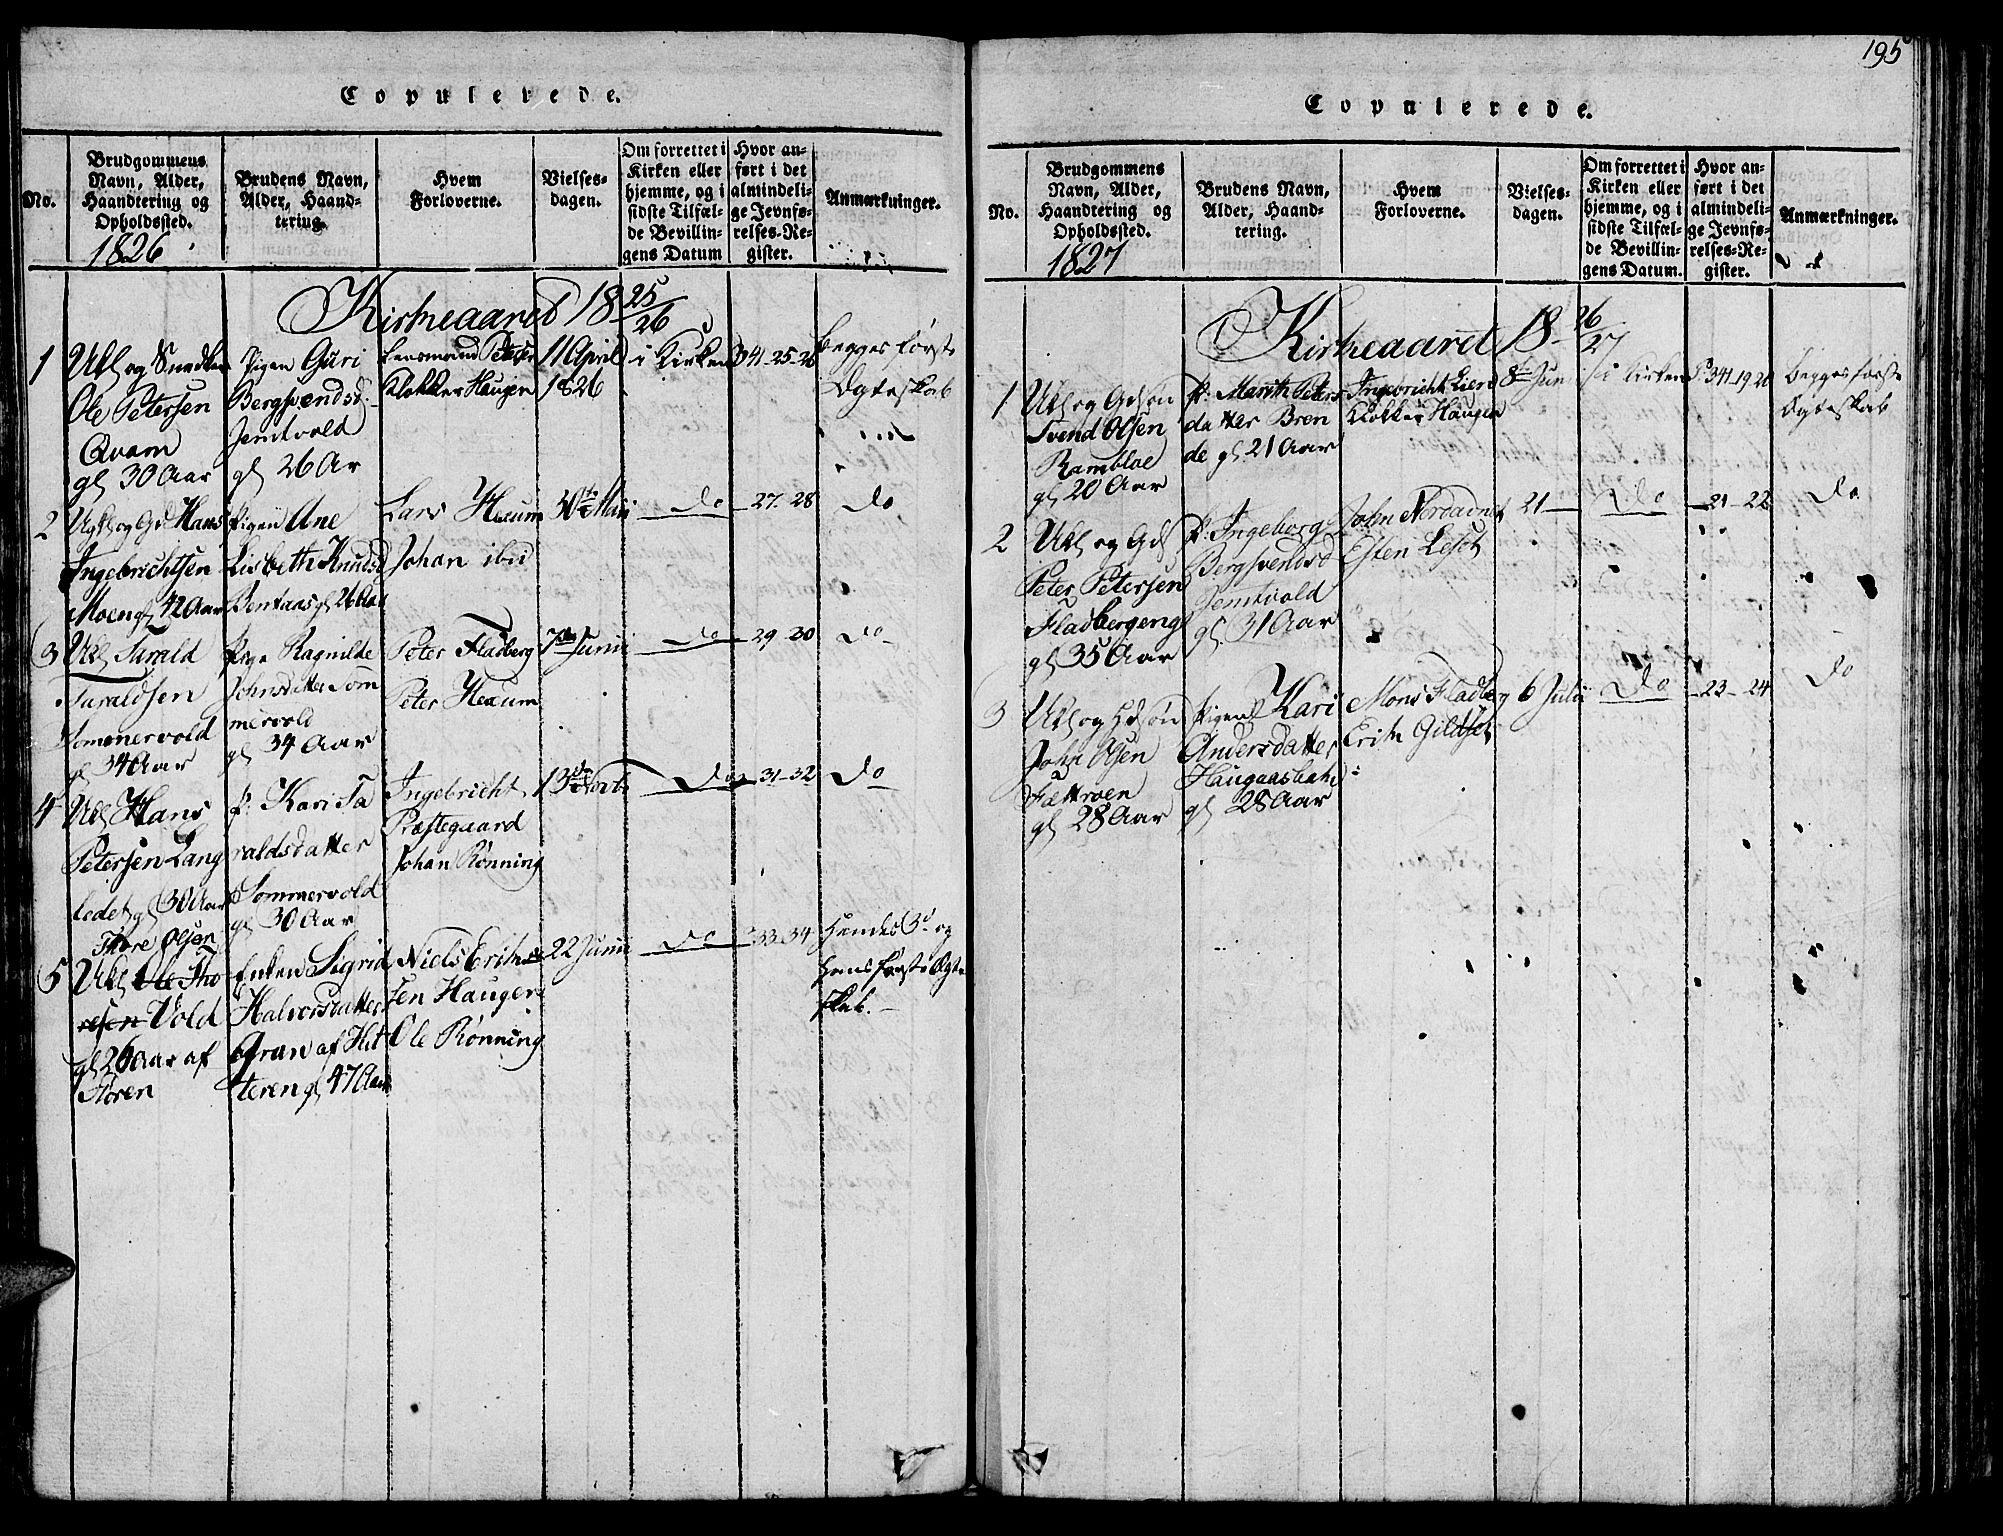 195
Copulerede.
No.
Brudgommens
Navn, Alder,
Haandtering og
Opholdssted.
1826
Brudens Navn,
Alder, Haand-
tering.
Hvem
Forloverne.
Vielses-
dagen.
Om forrettet i
Kirken eller
hjemme, og i
sidste Tilfæl-
de Bevillin-
gens Datum
Hvor an-
ført i det
almindeli-
ge Jevnfø-
relses-Re-
gister.
Anmærkninger.
Kirkeaaret 18 25/26
1
Ukl og Snedker
Ole Petersen
Qvam
gl 30 Aar
Pigen Guri
Bergsvendsd.
Jemtvold
gl 26 Ar
Lensmand Peter
Klokker Haugen
11 April
1826
i Kirken
341-25-26
begges første
Ægteskab
2
Ugkl og Gd Hans
Ingebrichtsen
Moen gl 42 Aar
Pigen Ane
Lisbeth Knudsd
Bentaas gl 26 Aar
Lars Hexum
Johan ibid
30te Maii
Do
27-28
Do
3
Ukl Tarald
Taraldsen
Sommervold
gl 34 Aar
Piga Ragnilde
Johnsdatter Som
mervold
gl 34 Aar
Peter Fladberg
Peter Hexum
7de Junii
Do
29-30
Do
4
Ukl Hans
Petersen Lang
ledet gl 30 Aar
P. Kari Ta
raldsdatter
Sommervold
gl 30 Aar
Ingebricht
Præstegaard
Johan Rønning
13de
Do
31-32
Do
Thore Olsen
5
Ukl Ole Tho
resen Vold
gl 26 Aar af
Støren
Enken Sigrid
Halvorsdatter
Gran af Hit
teren gl 47 Aar
Niels Erich
sen Haugen
Ole Rønning
22 Junii
Do
33-34
Hendes 3d og
hans første Ægte
skab.
Copulerede.
No.
Brudgommens
Navn, Alder,
Haandtering og
Opholdssted.
1827
Brudens Navn,
Alder, Haand-
tering.
Hvem
Forloverne.
Vielses-
dagen.
Om forrettet i
Kirken eller
hjemme, og i
sidste Tilfæl-
de Bevillin-
gens Datum.
Hvor an-
ført i det
almindeli-
ge Jevnfø-
relses-Re-
gister.
Anmærkninger.
Kirkeaaret 18 26/27
1
Ukl og Gdsøn
Svend Olsen
Rambloe
gl 20 Aar
P. Marith Peters
datter Bren
de gl 21 Aar
Ingebricht Lien
Klokker Haugen
8de Junii
i Kirken
P 341-19-20
begges første
Ægteskab
2
Ukl og Gds
Peter Petersen
Fladbergeng
gl 35 Aar
P. Ingeborg
Bergsvendsd
Jemtvold
gl. 31 Aar
John Nordavne
Esten Leset
21
Do
21-22
Do
3
Ukl og Hdsøn
John Olsen
Fættroen
gl 28 Aar
Pigen Kari
Andersdatter
Haugaasbak
gl 28 Aar
Mons Fladberg
Erich Gildset
6 Julii
Do
23-24
Do